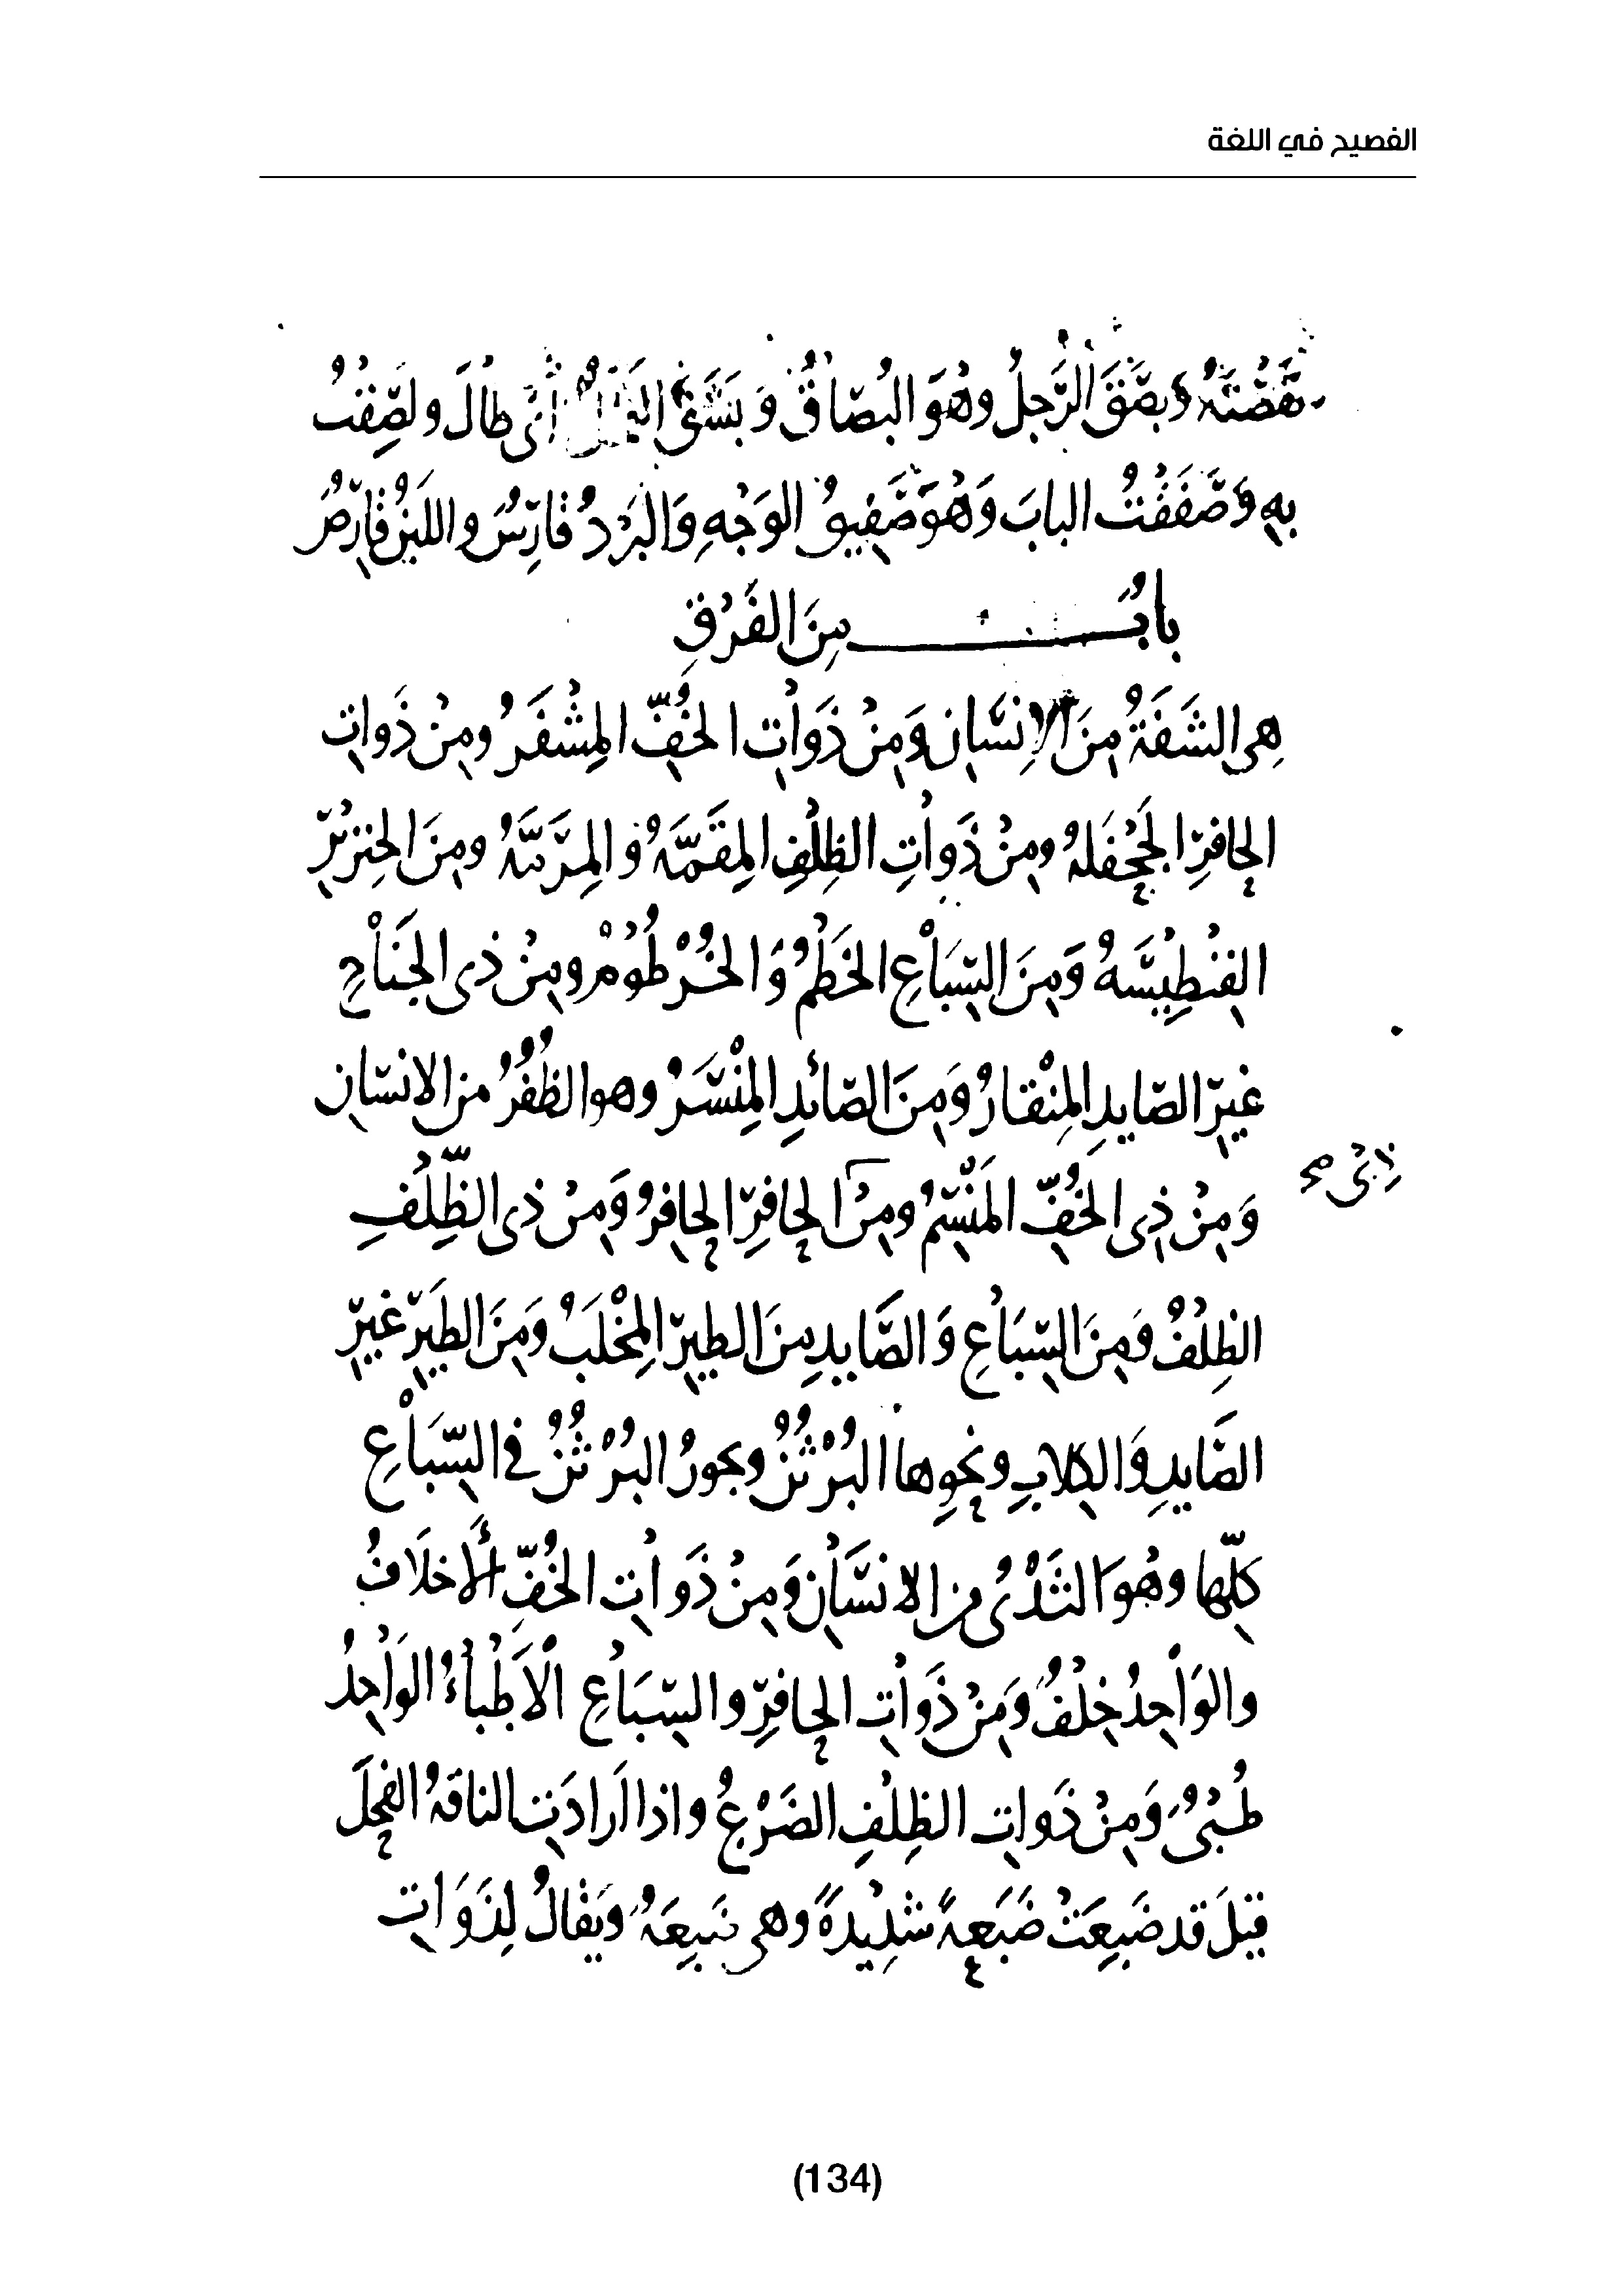 الفصيح في اللغة
وبَصَقَ الرَّجلُ وهُوَ البُصَاقُ وَبَسَقَ النَّخْلُ أىْ طالَ ولَصِقْتُ
بِهِ وَصَفَقْتُ البابَ وَهُوَ صَفِيقُ الوَجْهِ وَالبَرْدُ قارِسٌ واللَبَنُ قارِصٌ
بابٌ مِنَ الفَرْقِ
هِىَ الشَفَةُ مِنَ الاِنسَانِ وَمِنْ ذَوَاتِ الخُفِّ المِشْفَرُ ومِنْ ذَواتِ
الحافرِ الجَحْفَلهُ ومِنْ ذَواتِ الظِلْفِ المِقَمَّهُ وَالمِرَمّهُ ومِنَ الخِنزيْرِ
الفِنْطِيْسَهُ وَمِنَ السِبَاعِ الخَطْمُ وَالخُرْطُوْمُ ومِنْ ذى الجَنَاحِ
غيرِ الصايدِ المِنْقارُ وَمِنَ الصائدِ المِنْسَرُ وهو الظُفُرُ من الانسانِ
وَمِنْ ذِى الخُفِّ المَنْسِمُ ومِنَ الحافِرِ الحافرُ وَمِنْ ذى الظِّلْفِ
الظِلْفُ وَمِنَ السِبَاعِ وَالصَايدِ مِنَ الطيرِ المِخْلَبُ وَمِنَ الطَيرِ غيرِ
الصَايدِ وَالكلابِ ونحوِها البُرْثُنُ ويجوزُ البُرْثُنُ في السِّبَاعِ
كلِّها وهُوَ الثَدْىُ من الانسَانِ وَمِنْ ذَوَاتِ الخُفِّ الأخلَافُ
والوَاحِدُ خِلْفٌ وَمِنْ ذَوَاتِ الحافِرِ والسِبَاعِ الْأَطْبَاءُ الوَاحِدُ
طُبْىٌ وَمِنْ ذَواتِ الظِلْفِ الضَرْعُ واذا اَرادَتِ الناقهُ الفحْلَ
قيلَ قد ضَبِعَتْ ضَبَعةً شَدِيْدةً وهى ضَبِعَهٌ ويَقالُ لِذَوَاتِ
(134)